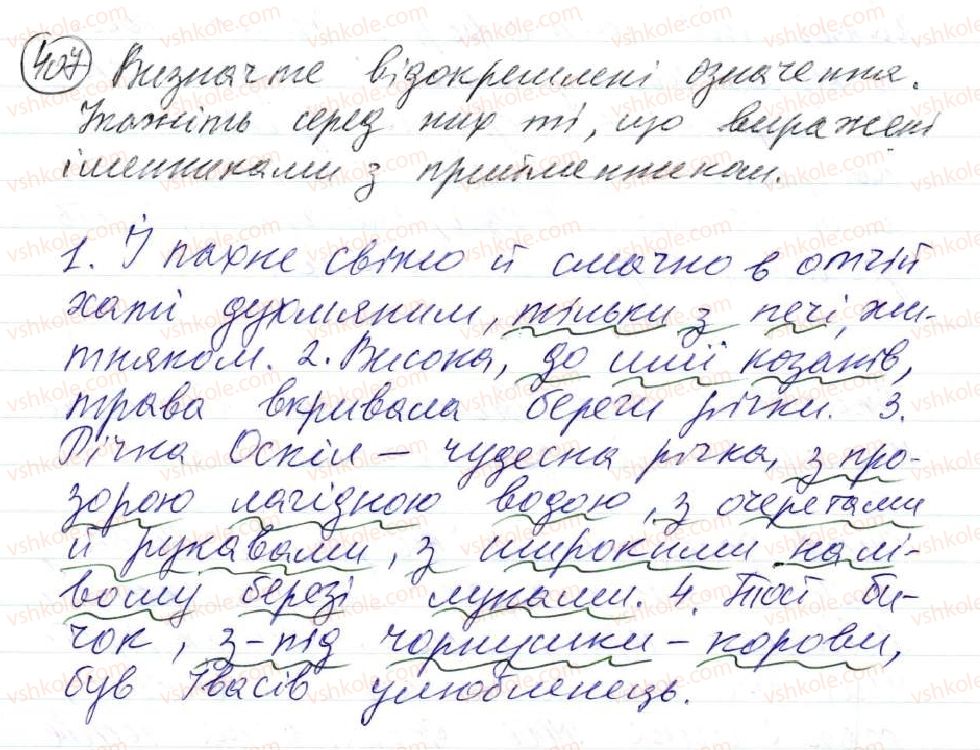 407 Визначте відокремлені означення.
Укажіть серед них ті, що виражені
іменниками з прийменником.
1. І пахне свіжо й смачно в отчій
хаті духмяним, тільки з печі, жи-
тняком. 2. Висока, до шиї козаків,
трава вкривала береги річки. 3.
Річка Оскіл – чудесна річка, з про-
зорою лагідною водою, з очеретами
й рукавами, з широкими на лі-
вому березі луками. 4. Той би-
чок, з-під чорнушки-корови,
був Івасів улюбленець.